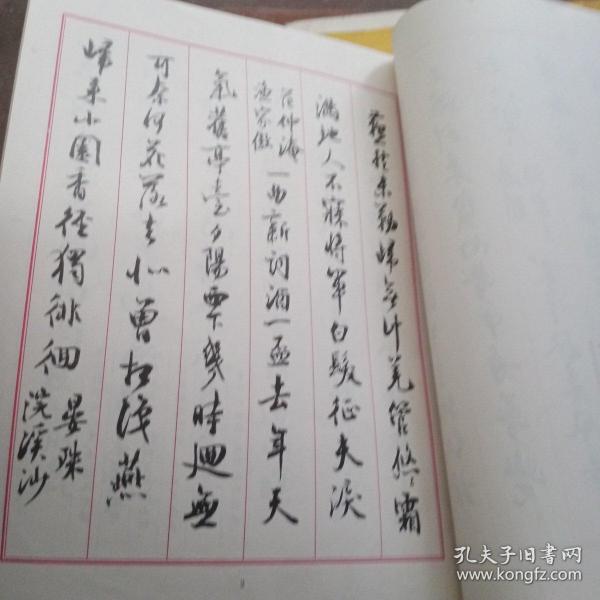 燕然未勒歸無計羌管悠〻霜
滿地人不寐將軍白髮征夫淚
范仲淹
漁家傲
一曲新詞酒一盃去年天
氣舊亭臺夕陽西下幾時迴無
可奈何花落去似曾相識燕
歸來小園香徑獨徘徊
晏殊
浣溪沙
孔夫子旧书网
www.kongfz.com